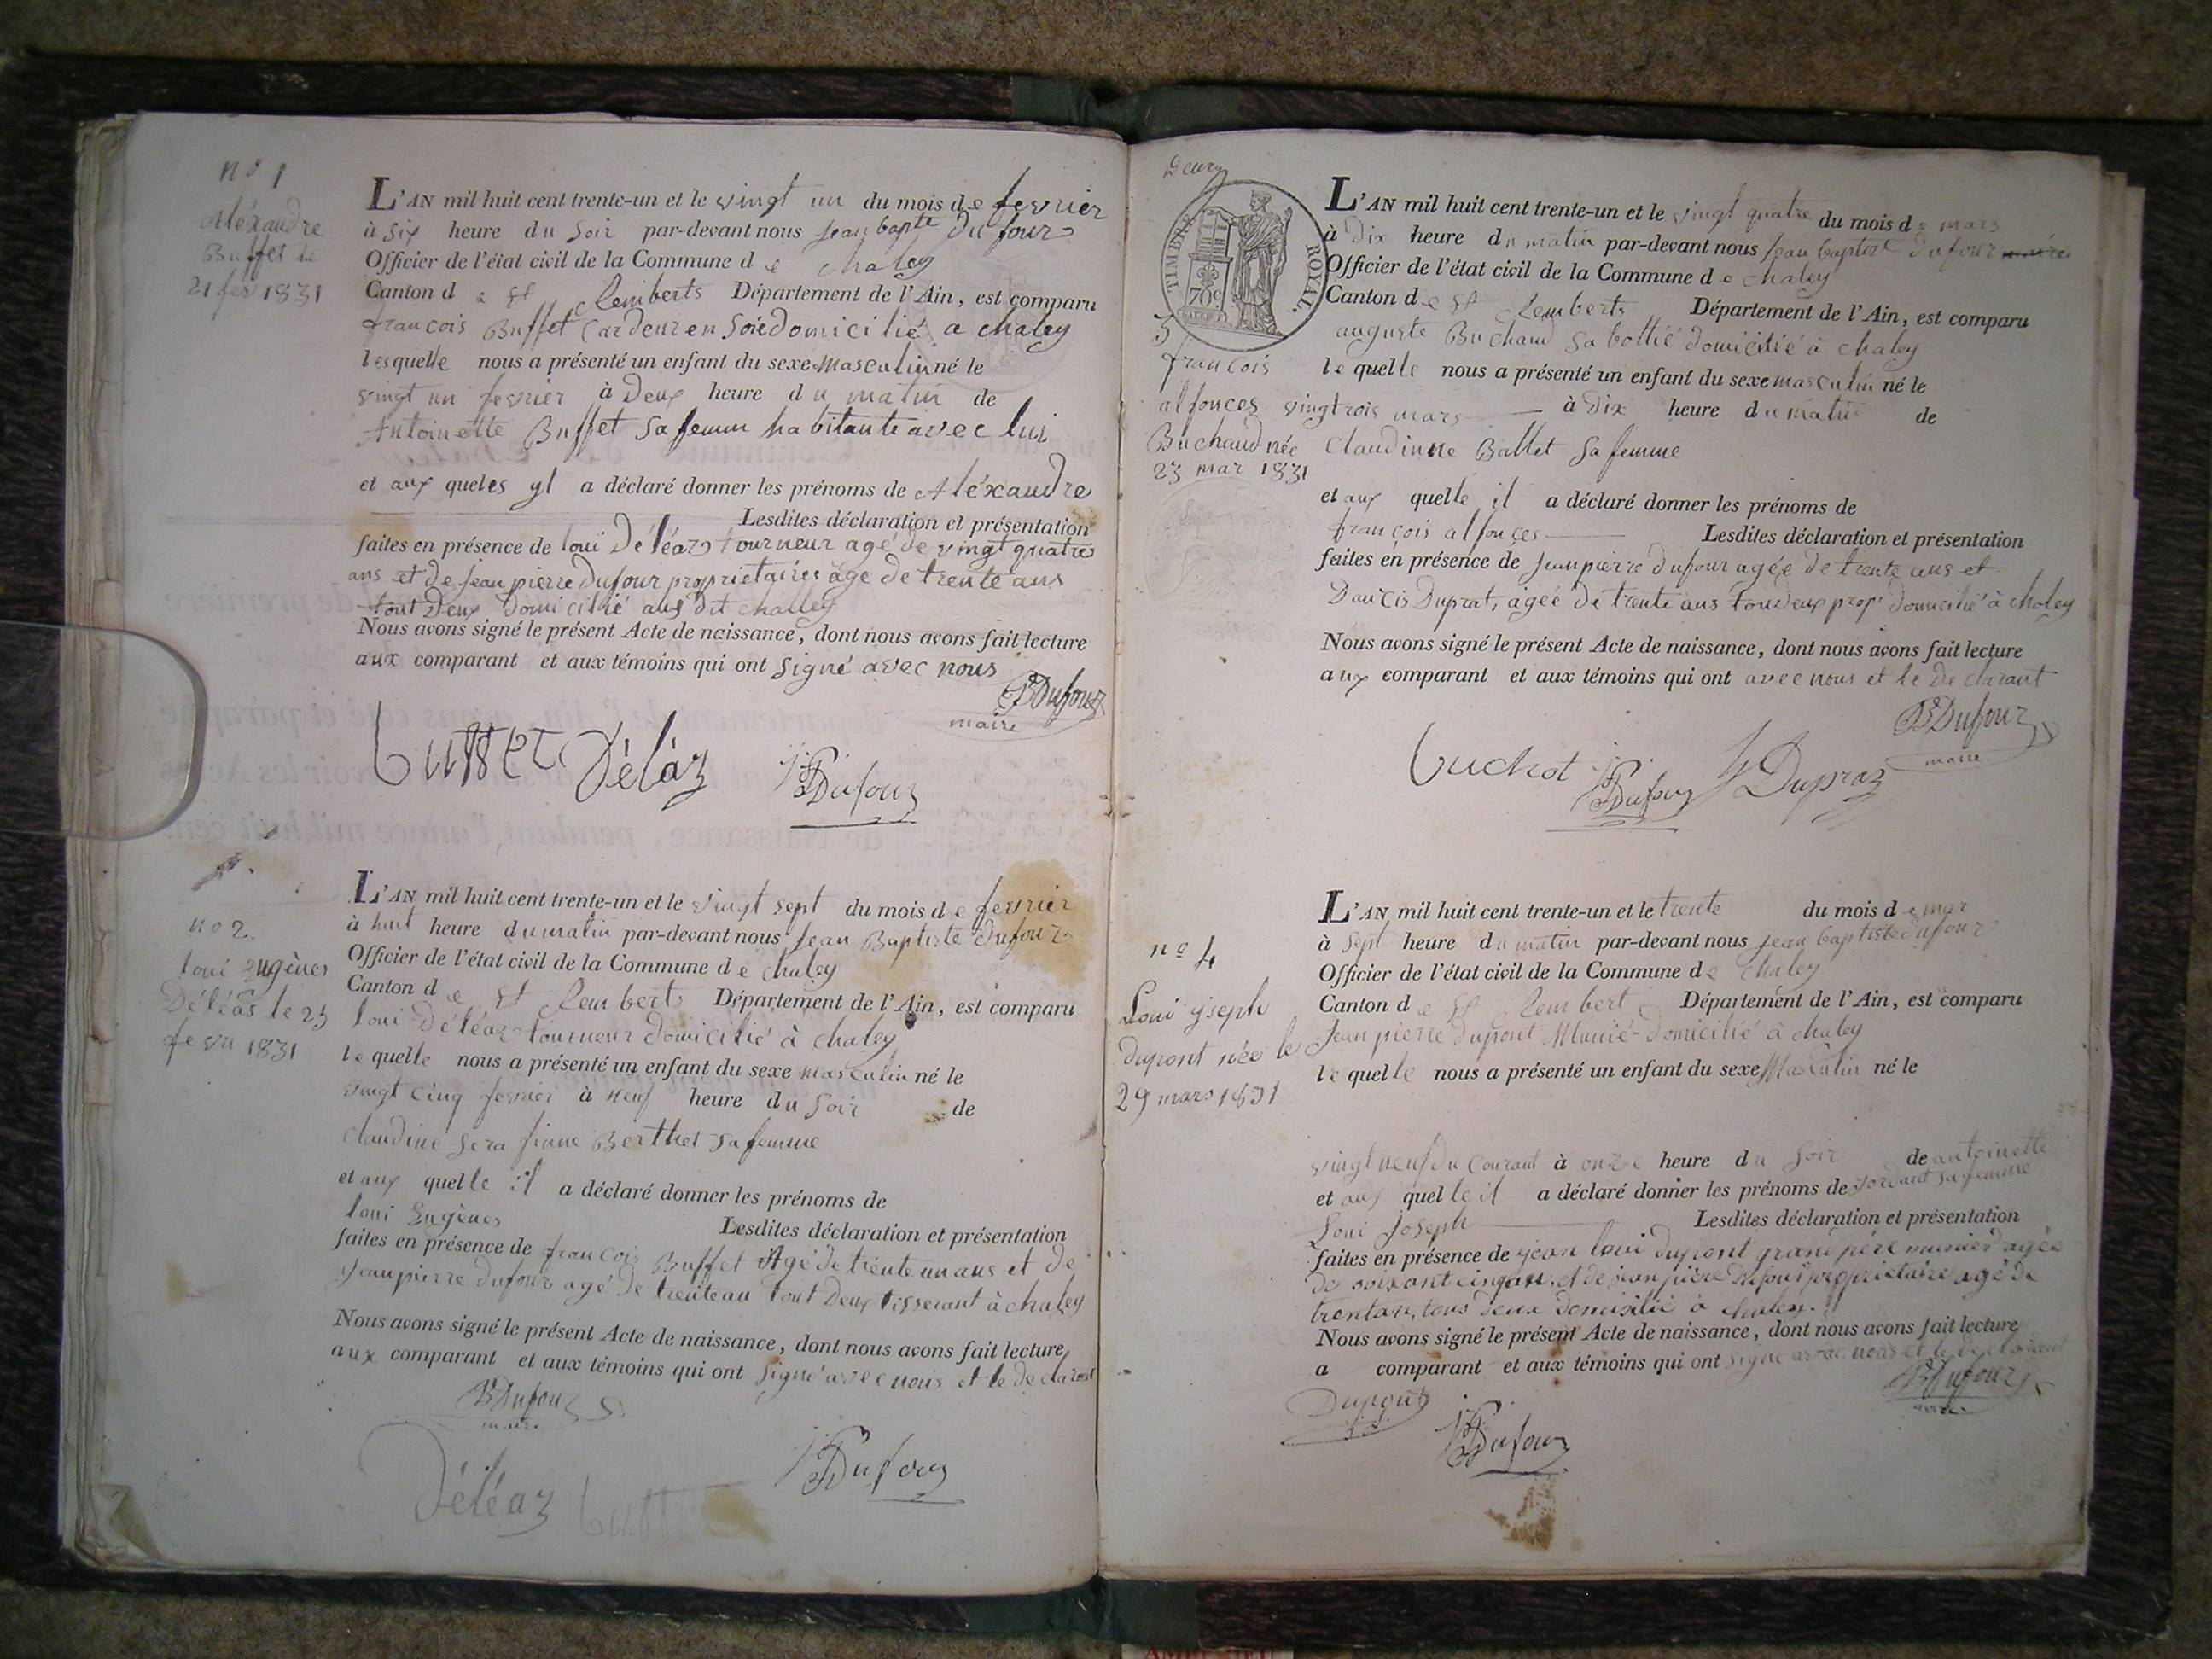 n° 1
Aléxandre
Buffet le
21 fev 1831
L'AN mil huit cent trente-un et le vingt un du mois de fevrier
à six heure du soir par-devant nous jean bapte Dufour
Officier de l'état civil de la Commune de chaley
Canton de st Remberts Département de l'Ain, est comparu
francois Buffet Cardeur en soie domicilié a chaley
lesquelle nous a présenté un enfant du sexe masculin né le
vingt un fevrier à Deux heure du matin de
Antoinette Buffet sa femm habitante avec lui
et aux queles yl a déclaré donner les prénoms de Aléxandre
Lesdites déclaration et présentation
faites en présence de loui Déléaz tourneur agé de vingt quatre
ans et de jean pierre Dufour proprietaires age de trente ans
tout Deux domicilié aus dit challey
Nous avons signé le présent Acte de naissance, dont nous avons fait lecture
aux comparant et aux témoins qui ont signé avec nous
Dufour
maire
buffet Déláz Dufour
n° 2.
loui eugènes
Déléas le 25
fevri 1831
L'AN mil huit cent trente-un et le vingt sept du mois de fevrier
à huit heure du matin par-devant nous jean Baptiste Dufour
Officier de l'état civil de la Commune de chaley
Canton de st Remberts Département de l'Ain, est comparu
loui Déléaz tourneur domicilié à chaley
le quelle nous a présenté un enfant du sexe masculin né le
vingt cinq fevrier à neuf heure du soir de
claudine serafinne Berthet sa femme
et aux quelle il a déclaré donner les prénoms de
loui Eugènes Lesdites déclaration et présentation
faites en présence de francois Buffet Agé de trente un ans et de
jeanpierre dufour agé de trente an tout Deux tisserant à chaley
Nous avons signé le présent Acte de naissance, dont nous avons fait lecture
aux comparant et aux témoins qui ont signé avec nous et le declarant
Dufour
maire
Dufour
Déléaz buffet
TIMBRE ROYAL.
70c
3
francois
alfonces
Buchaud née
23 mar 1831
L'AN mil huit cent trente-un et le vingt quatre du mois de mars
à Dix heure du matin par-devant nous jean baptist dufour maire
Officier de l'état civil de la Commune de chaley
Canton de st Remberts Département de l'Ain, est comparu
auguste Buchaud sabottié domicilié à chaley
le quelle nous a présenté un enfant du sexe masculin né le
vingtrois mars à Dix heure du matin de
Claudinne Ballet sa femme
et aux quelle il a déclaré donner les prénoms de
françois alfonçes Lesdites déclaration et présentation
faites en présence de jeanpierre dufour agée de trente ans et
Duprat, agée de trente ans tou deux prop domicilié à chaley
Nous avons signé le présent Acte de naissance, dont nous avons fait lecture
aux comparant et aux témoins qui ont avec nous et le declarant
Dufour
maire
buchot Dufour Dupraz
n° 4
Loui yseph
dupont née le
29 mars 1831
L'AN mil huit cent trente-un et le trente du mois de mar
à sept heure du matin par-devant nous jean baptiste dufour
Officier de l'état civil de la Commune de chaley
Canton de st Rembert Département de l'Ain, est comparu
Jean pierre dupont Munié domicilié à chaley
le quelle nous a présenté un enfant du sexe Masculin né le
vingt neuf du courant à onze heure du soir de antoinette
et aux quelle il a déclaré donner les prénoms de jordant sa femme
Loui Joseph Lesdites déclaration et présentation
faites en présence de jean loui dupont grand père munier agée
de soixant cinq an, et de jean piere dufour proprietaire agé de
trentan, tous deux domisilié à chaley.
Nous avons signé le présent Acte de naissance, dont nous avons fait lecture
a comparant et aux témoins qui ont signe avec nous et le declarant
Dufour
Dupont
Dufour